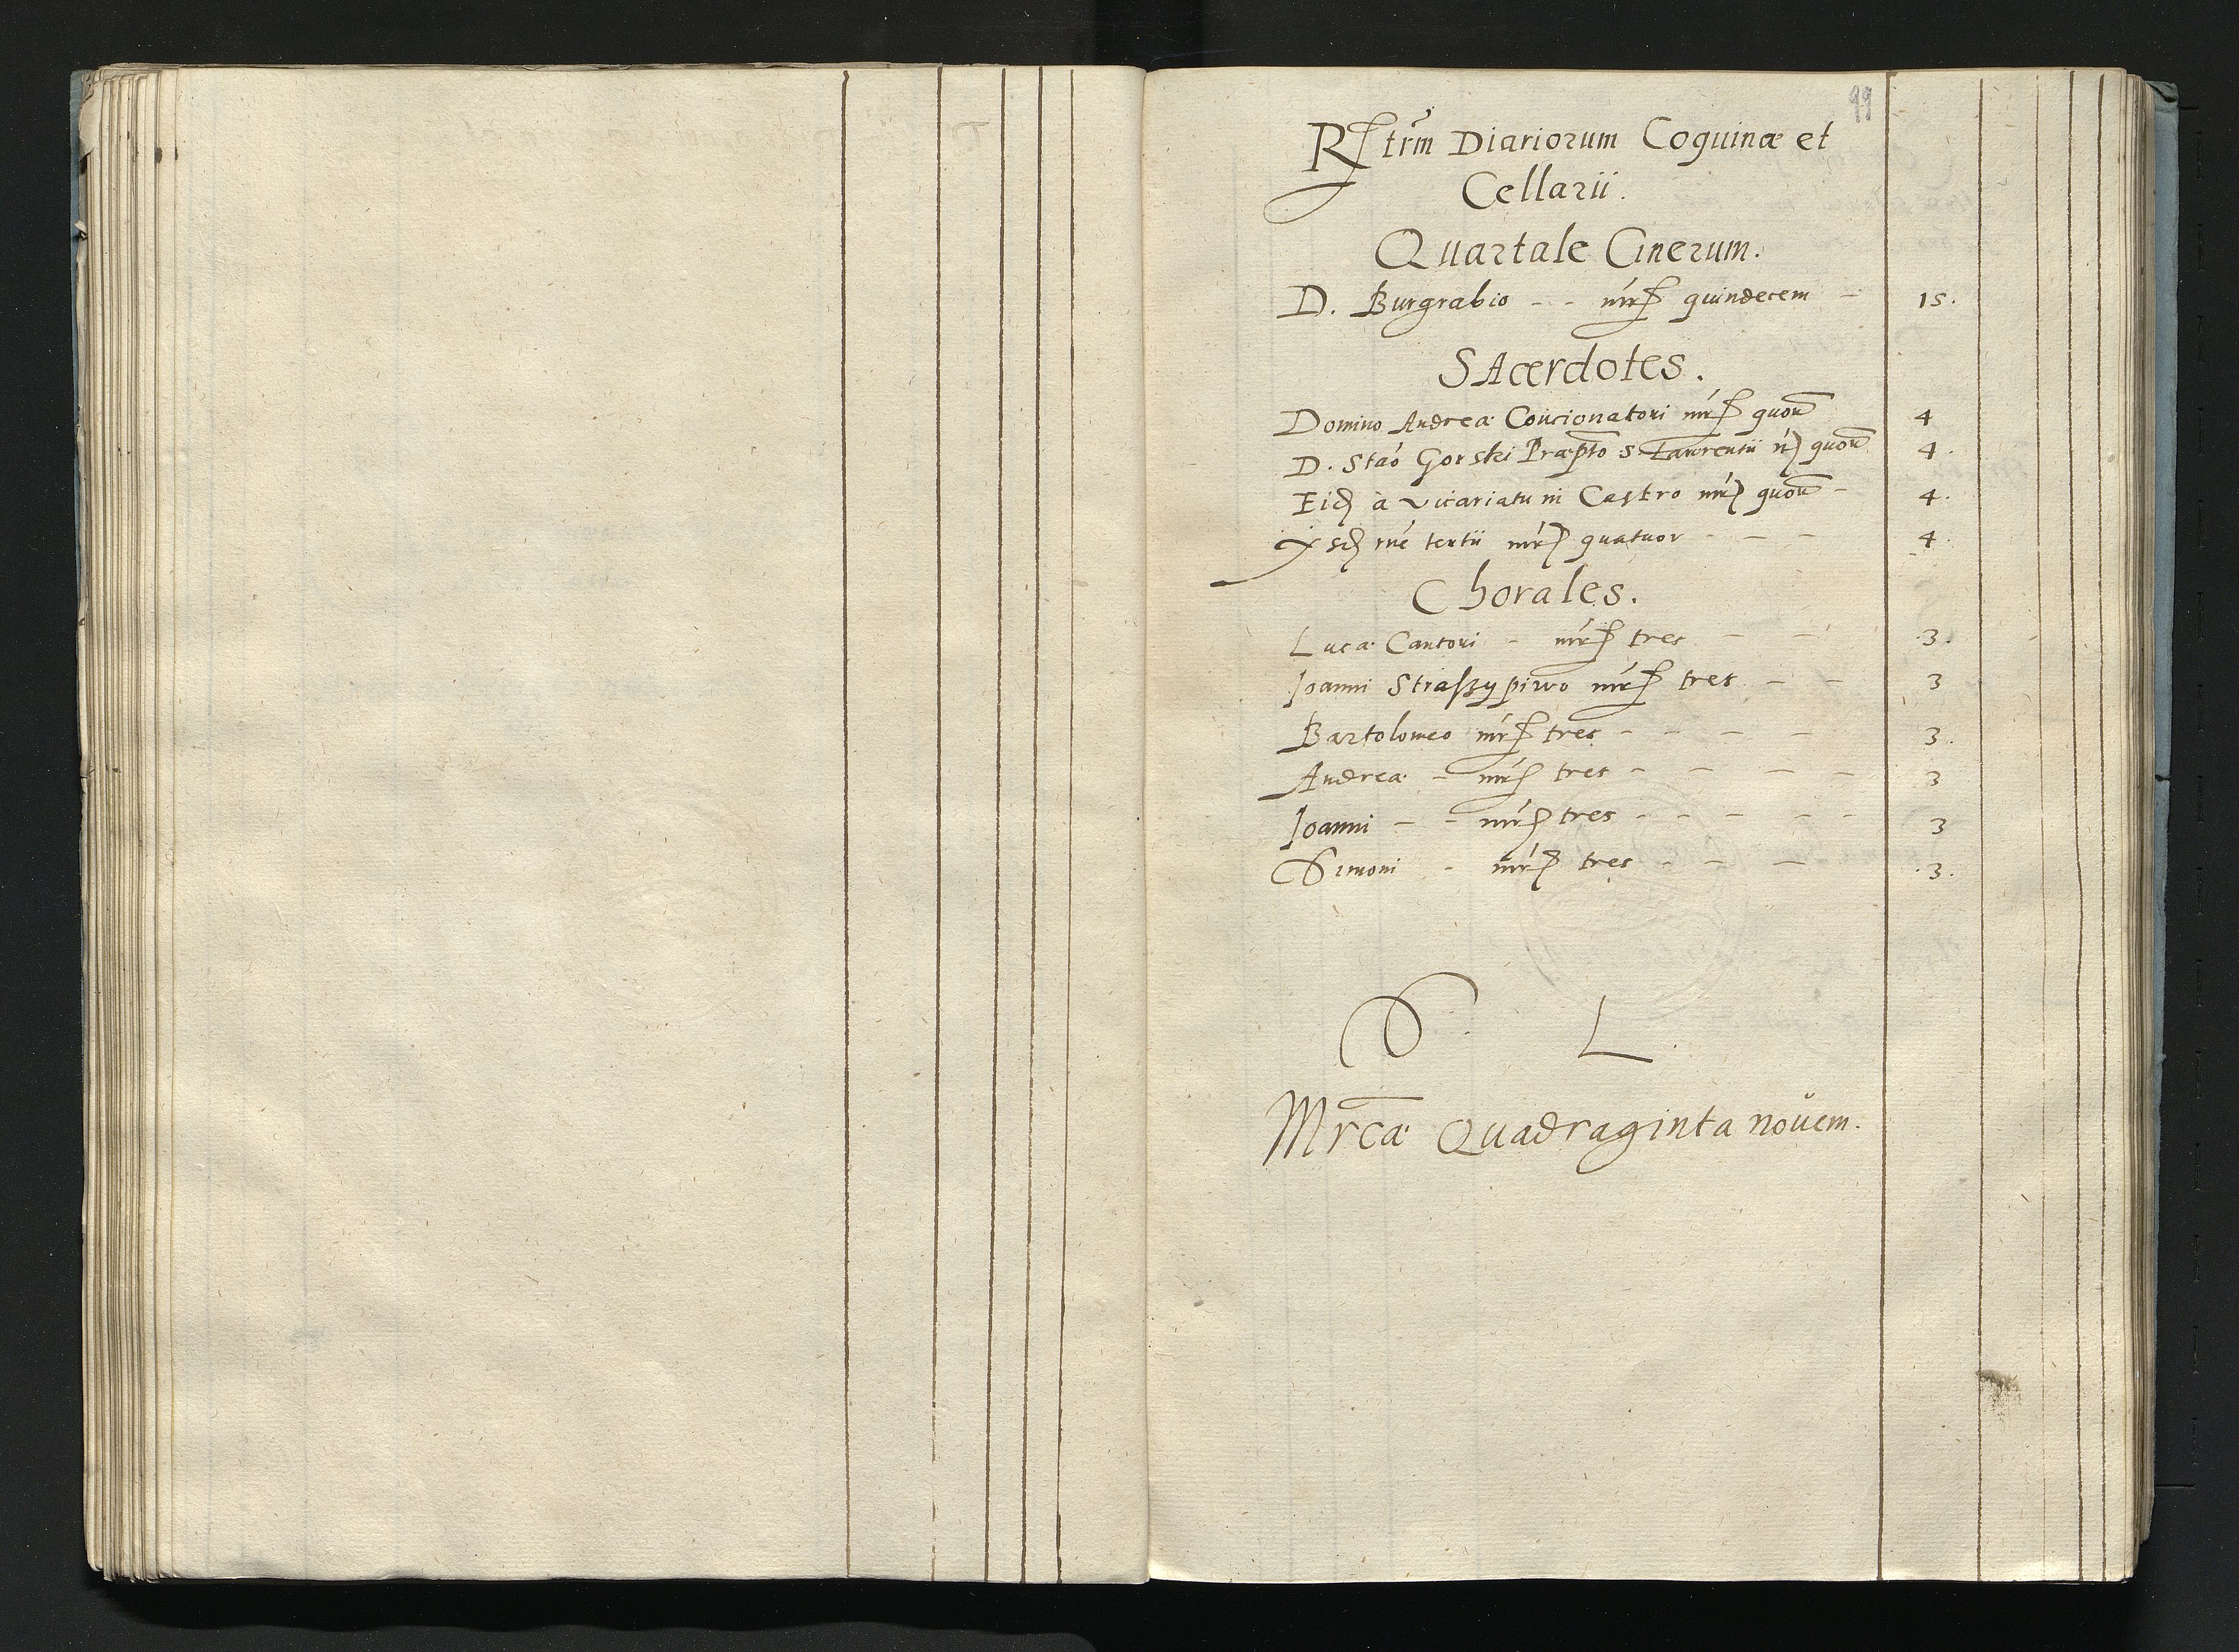 99
Rſtrm Diariorum Coquinæ et
Cellarii.
Quartale Cinerum.
D. Burgrabio - - mrꝭ quindecem - 15.
SAcerdotes.
Domino Andreæ Concionatori mrꝭ quor 4
D. Stao Gorski Præpto S. Laurentii mꝭ quor 4.
Eidꝭ a vicariatu in Castro mrꝭ quor - 4.
tertii mrꝭ quatuor - - - 4.
Chorales.
Lucæ Cantori - mrꝭ tres - - 3.
Joanni Straſzypiwo mrꝭ tres - - 3
Bartolomeo mrꝭ tres - - - - 3.
Andreæ - mrꝭ tres - - - - 3
Joanni - - mrꝭ tres - - - - - 3
Simoni - mrꝭ tres - - - 3.
S L
Mrcæ Quadraginta novem.